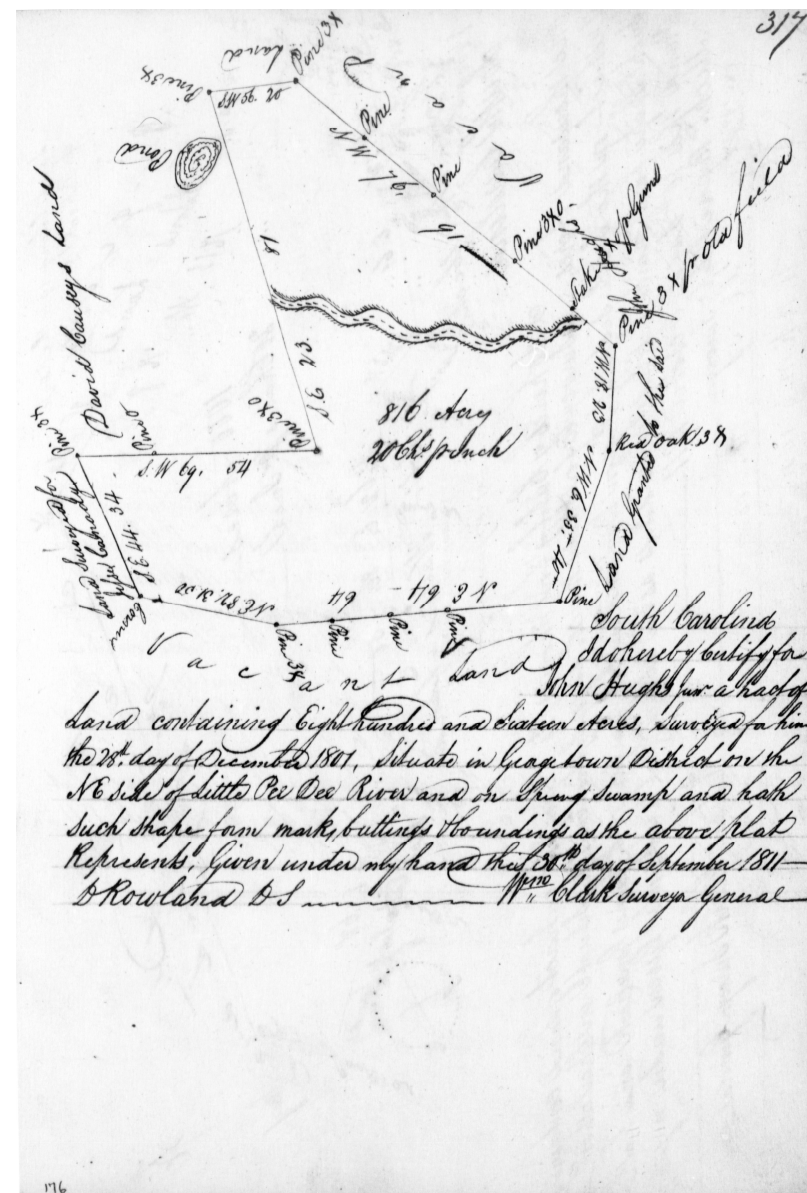 317
Land
Pine 3X
Pine 3X
Pond
Pine
Pine
Vacant
16
Pine 3X0
Stake 3X
Pine 3X pr old field
David Causeys Land
18
S.E 23.
Pine 3X
Pine 0
Pine 3X0
S.W 69. 54
816 Acres
20 Chs pr inch
Red oak 3X
Land Granted to the said
Land Surveyed for
S E 44. 34
Pine
N E 64
64
Pine
Pine
Pine
Pine 3X
Vacant Land
South Carolina
I do hereby Certify for
John Hughs Junr a tract of
Land containing Eight hundred and Sixteen Acres, Surveyed for him
the 28th day of December 1801, Situate in Georgetown District on the
NE side of Little Pee Dee River and on Spring Swamp and hath
such shape form marks, buttings & boundings as the above plat
Represents, Given under my hand this 30th day of September 1811
D Rowland D S Wm Clark Surveyor General
176